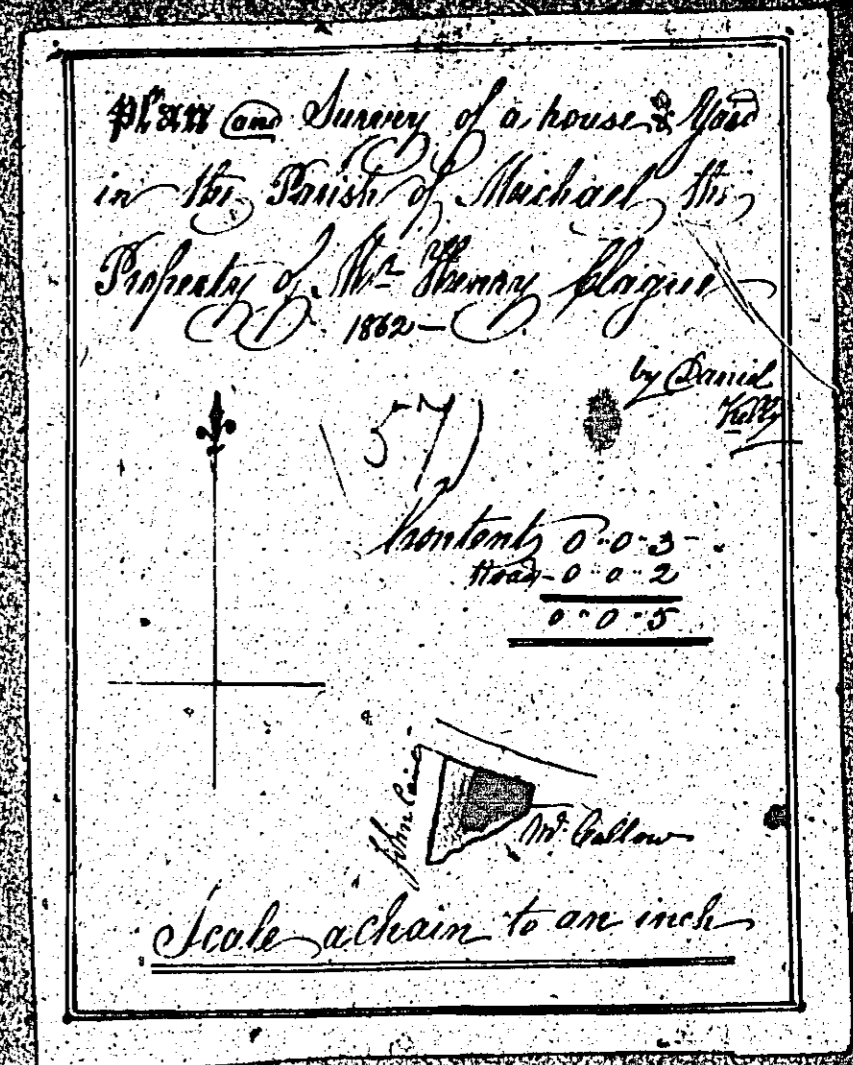 Plan and Survey of a house & Yard
in the Parish of Michael the
Property of Mr Henry Clague
1862 —
by Daniel
Kelly
57)
Content 0 " 0 " 3 -
Road - 0 " 0 " 2
0 " 0 " 5
John Cain
Mr. Callow
Scale a chain to an inch